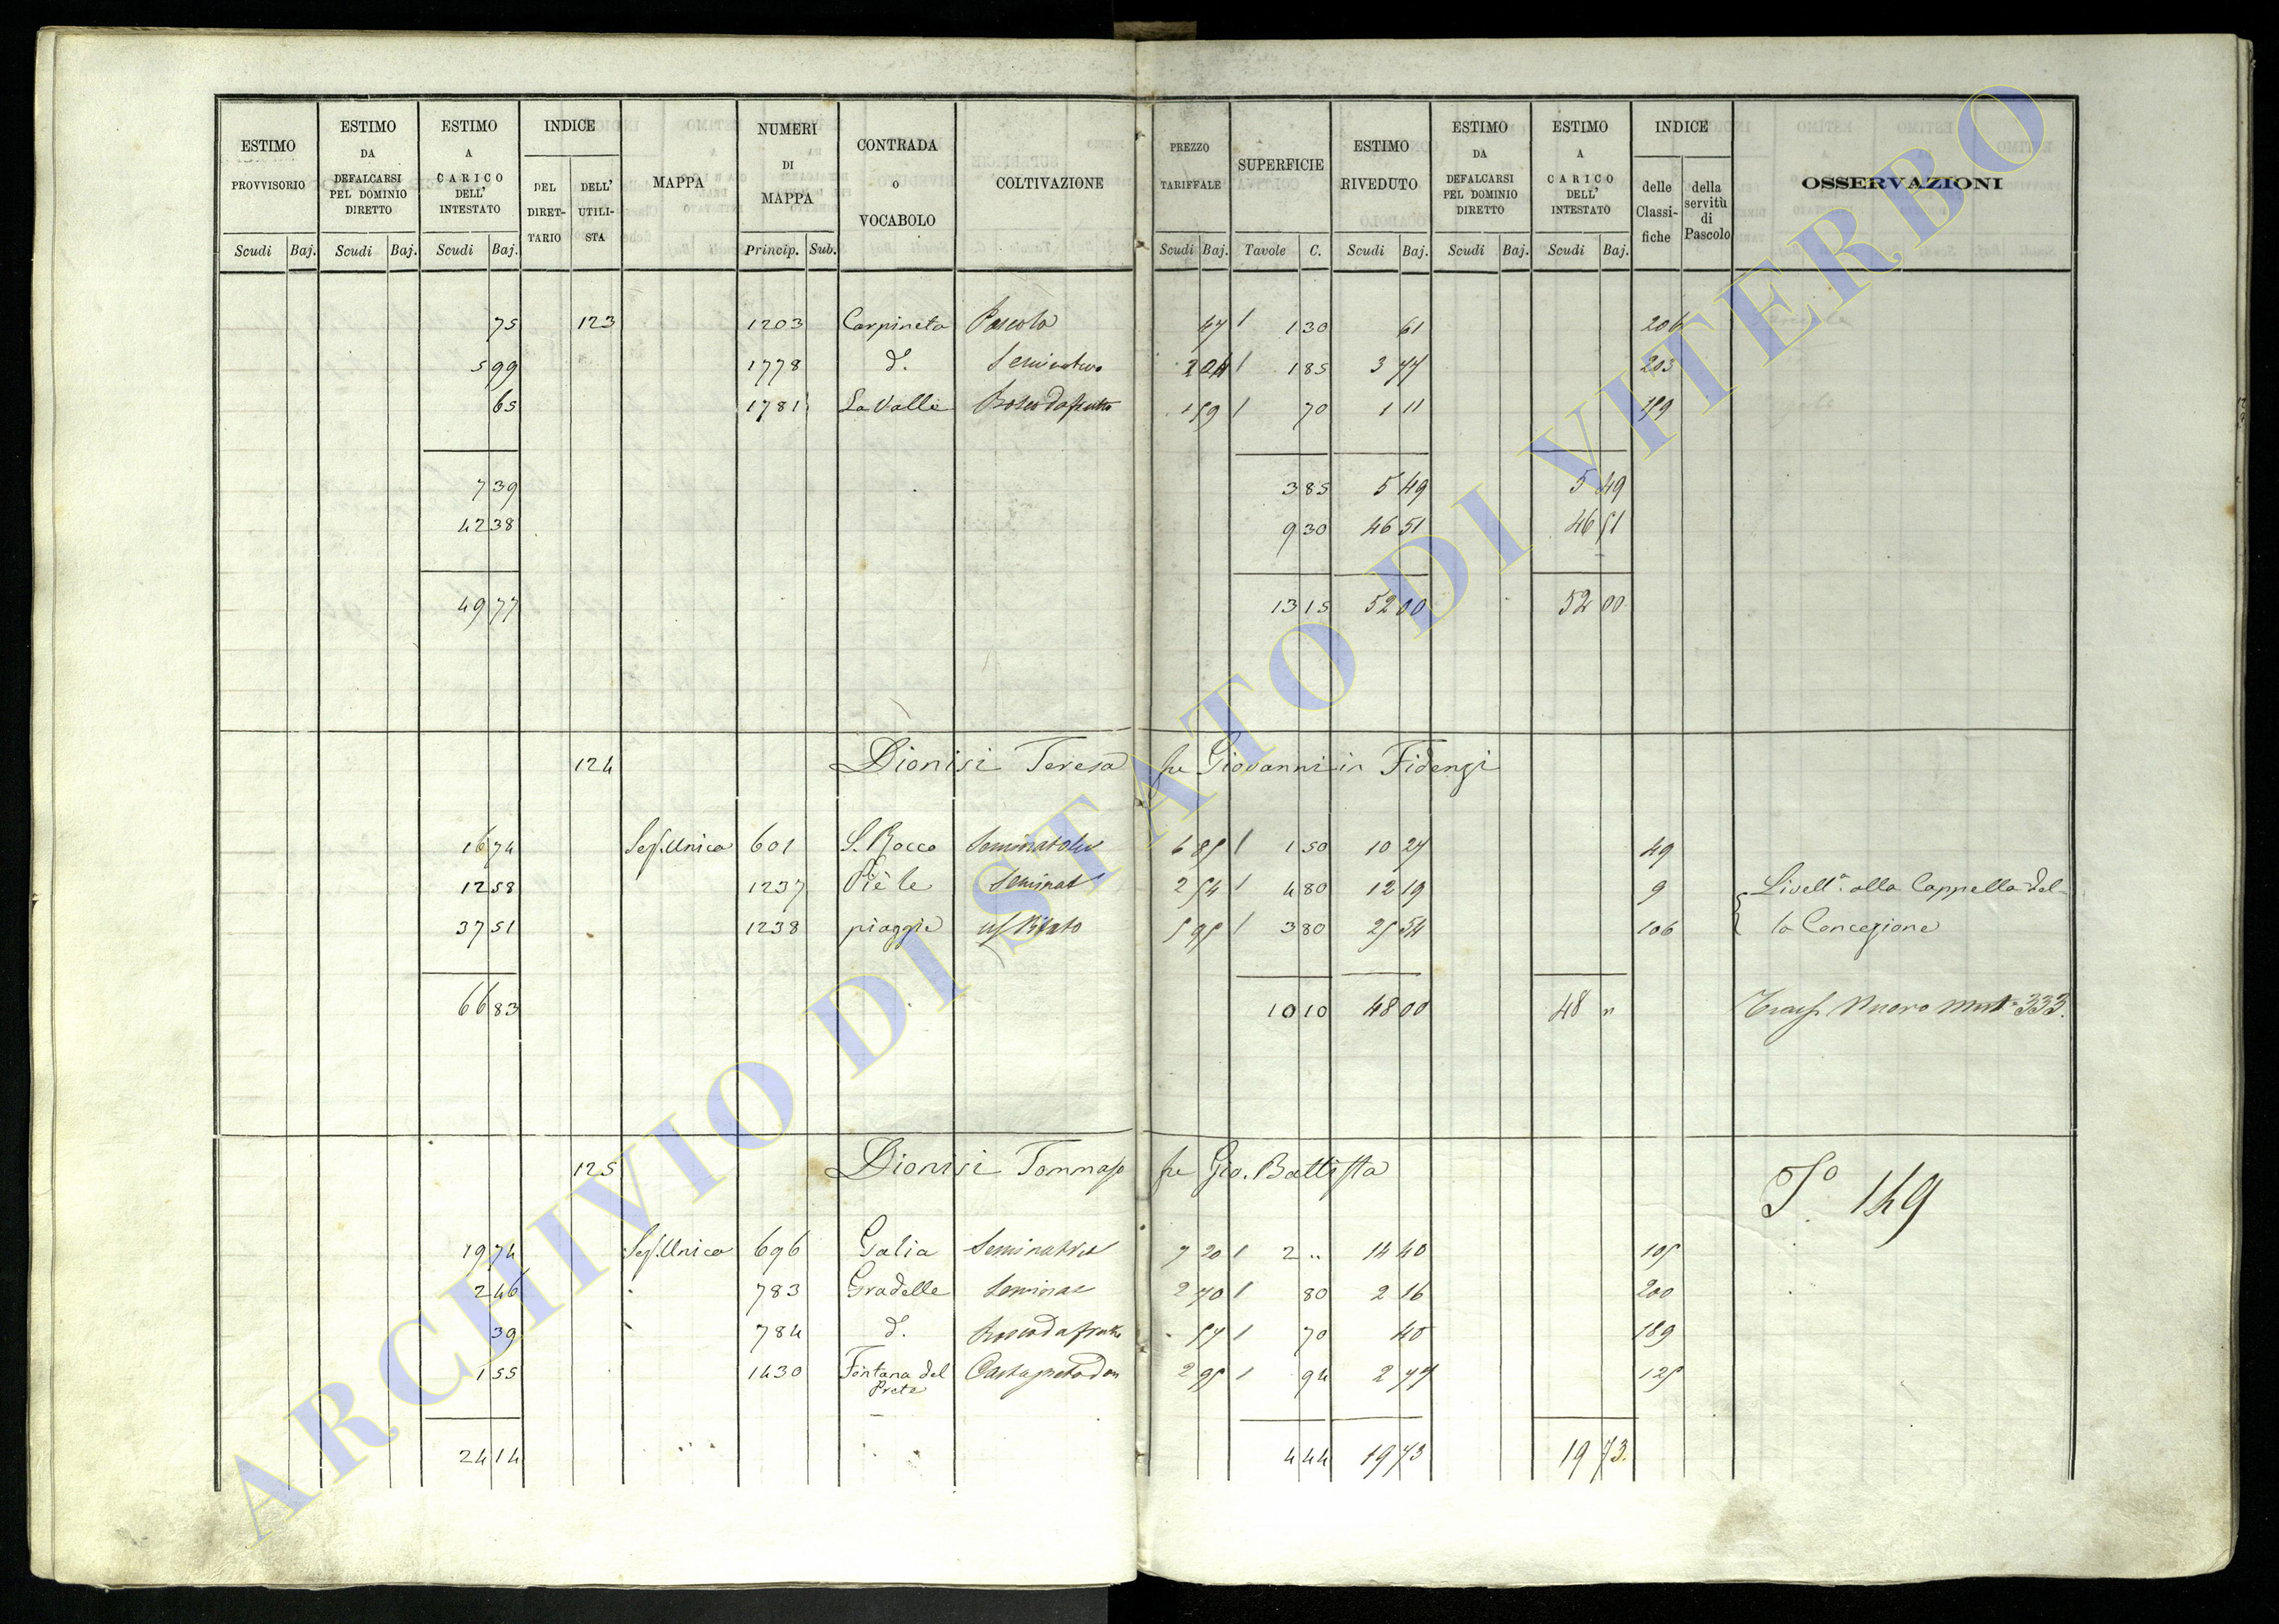 ESTIMO PROVVISORIO
Scudi Baj.
ESTIMO DA DEFALCARSI PEL DOMINIO DIRETTO
Scudi Baj.
ESTIMO A CARICO DELL' INTESTATO
Scudi Baj.
INDICE
DEL DIRET-TARIO
DELL' UTILI-STA
MAPPA
NUMERI DI MAPPA
Princip. Sub.
CONTRADA o VOCABOLO
COLTIVAZIONE
PREZZO TARIFFALE
Scudi Baj.
SUPERFICIE
Tavole C.
ESTIMO RIVEDUTO
Scudi Baj.
ESTIMO DA DEFALCARSI PEL DOMINIO DIRETTO
Scudi Baj.
ESTIMO A CARICO DELL' INTESTATO
Scudi Baj.
INDICE
delle Classi-fiche
della servitù di Pascolo
OSSERVAZIONI
75 123 1203 Carpineta Pascolo 47 1 30 61 206
5 99 1778 d. Seminativo 2 04 1 85 3 77 203
65 1781 La Valle Bosco da frutto 1 59 70 1 11 189
7 39 3 85 5 49 5 49
42 38 9 30 46 51 46 51
49 77 13 15 52 00 52 00
124 Dionisi Teresa fu Giovanni in Fidenzi
16 74 Sez. Unica 601 S. Rocco Seminativo 6 85 1 50 10 27 49
12 58 1237 Piè le Seminat 2 54 4 80 12 19 9 Livell.ª alla Cappella del-
37 51 1238 piaggie 5 95 3 80 25 54 106 la Concezione
66 83 10 10 48 00 48 " Trasf. Nuovo 333.
125 Dionisi Tommaso fu Gio. Battista
Tº 149
19 74 Sez. Unica 696 Galia Seminativo 7 20 2 " 14 40 105
2 46 783 Gradelle Seminat 2 70 80 2 16 200
39 784 d. Bosco da frutto 57 70 40 189
1 55 1430 Fontana del Prete 2 95 94 2 77 125
24 14 4 44 19 73 19 73.
ARCHIVIO DI STATO DI VITERBO